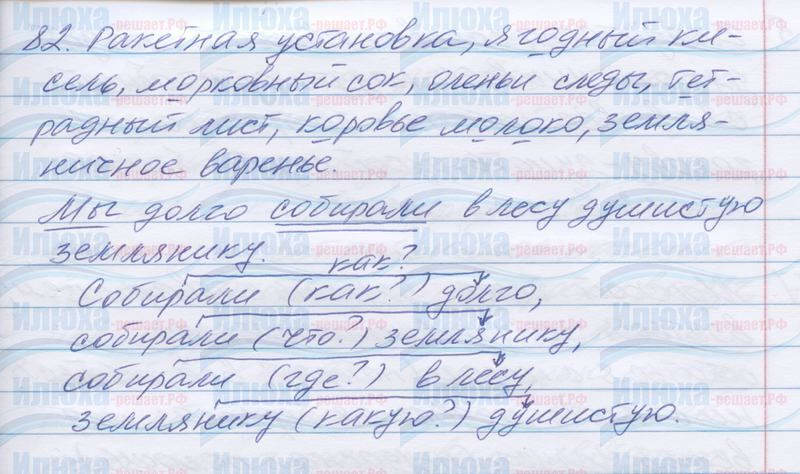 82. Ракетная установка, ягодный ки-
сель, морковный сок, оленьи следы, тет-
радный лист, коровье молоко, земля-
ничное варенье.
Мы долго собирали в лесу душистую
землянику. как?
Собирали (как?) долго,
собирали (что?) землянику,
собирали (где?) в лесу,
землянику (какую?) душистую.